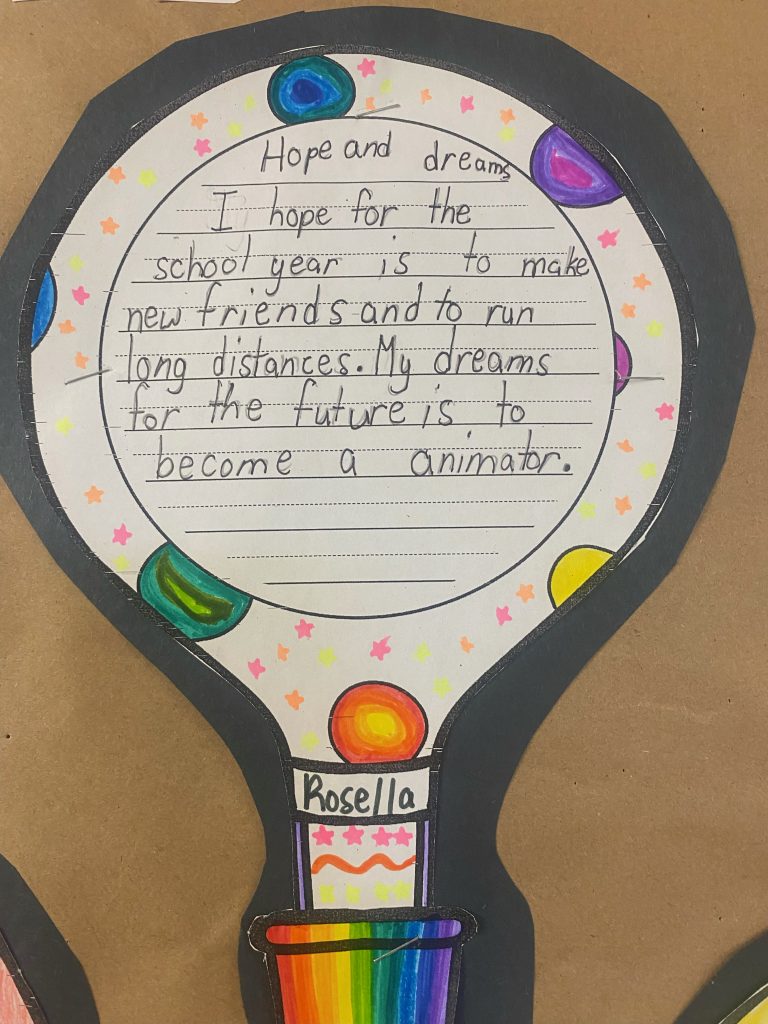 Hope and dreams
I hope for the
school year is to make
new friends and to run
long distances. My dreams
for the future is to
become a animator.
Rosella